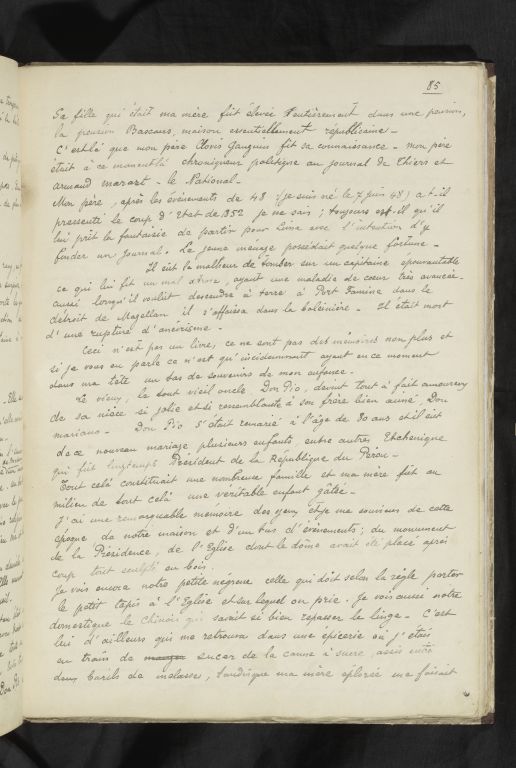 85
Sa fille qui était ma mère fût élevée entièrement dans une pension,
la pension Bascans, maison essentiellement républicaine -
C'est là que mon père Clovis Gauguin fit sa connaissance - mon père
était à ce moment là chroniqueur politique au journal de Thiers et
Armand Marast - le National -
Mon père, après les évènements de 48 (je suis né le 7 juin 48) a-t-il
pressenti le coup d'Etat de 1852 je ne sais ; toujours est-il qu'il
lui prit la fantaisie de partir pour Lima avec l'intention d'y
fonder un journal. Le jeune ménage possédait quelque fortune -
Il eut le malheur de tomber sur un capitaine épouvantable
ce qui lui fit un mal atroce, ayant une maladie de cœur très avancée.
aussi lorsqu'il voulût descendre à terre à Port Famine dans le
détroit de Magellan il s'affaissa dans la baleinière - Il était mort
d'une rupture d'anévrisme -
Ceci n'est pas un livre, ce ne sont pas des mémoires non plus et
si je vous en parle ce n'est qu'incidemment ayant en ce moment
dans ma tête un tas de souvenirs de mon enfance -
Le vieux, le tout vieil oncle Don Pio, devint tout à fait amoureux
de sa nièce si jolie et si ressemblante à son frère bien aimé, Don
Mariano - Don Pio s'était remarié à l'âge de 80 ans et il eût
de ce nouveau mariage plusieurs enfants, entre autres Etchenique
qui fût longtemps Président de la République du Pérou -
Tout celà constituait une nombreuse famille et ma mère fût au
milieu de tout celà une véritable enfant gâtée -
J'ai une remarquable mémoire des yeux et je me souviens de cette
époque de notre maison et d'un tas d'évènements ; du monument
de la Présidence, de l'Eglise dont le dôme avait été placé après
coup tout sculpté en bois.
Je vois encore notre petite négresse celle qui doit selon la règle porter
le petit tapis à l'Eglise et sur lequel on prie. Je vois aussi notre
domestique le Chinois qui savait si bien repasser le linge - C'est
lui d'ailleurs qui me retrouva dans une épicerie où j'étais
en train de sucer de la canne à sucre, assis entre
deux barils de mélasse, tandisque ma mère éplorée me faisait